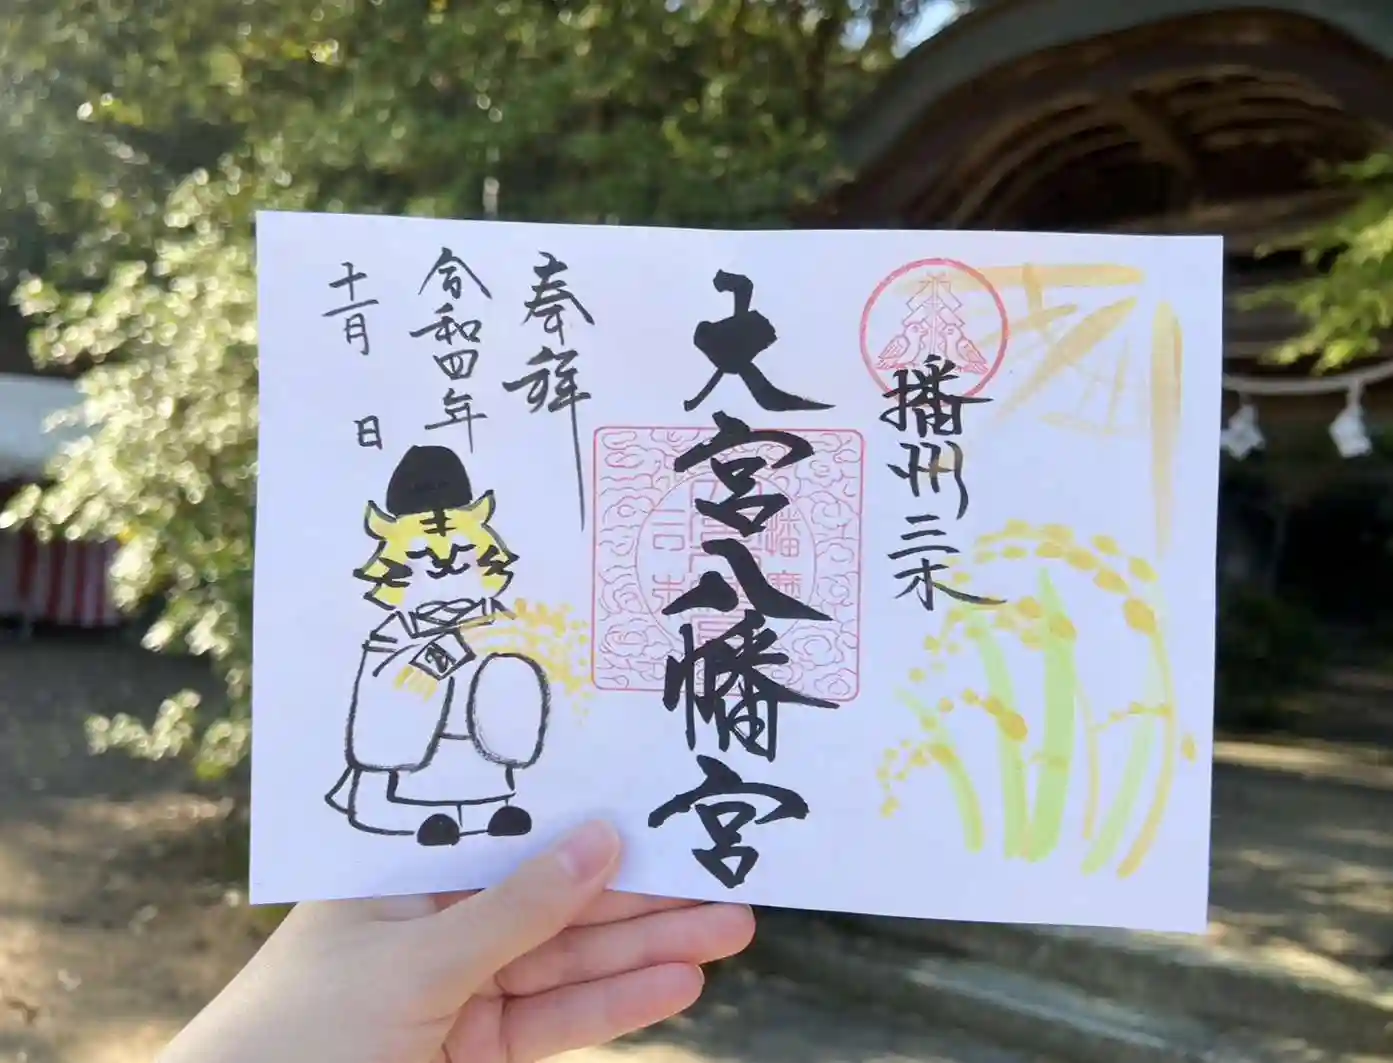 播州三木
大宮八幡宮
奉拝
令和四年
十一月 日